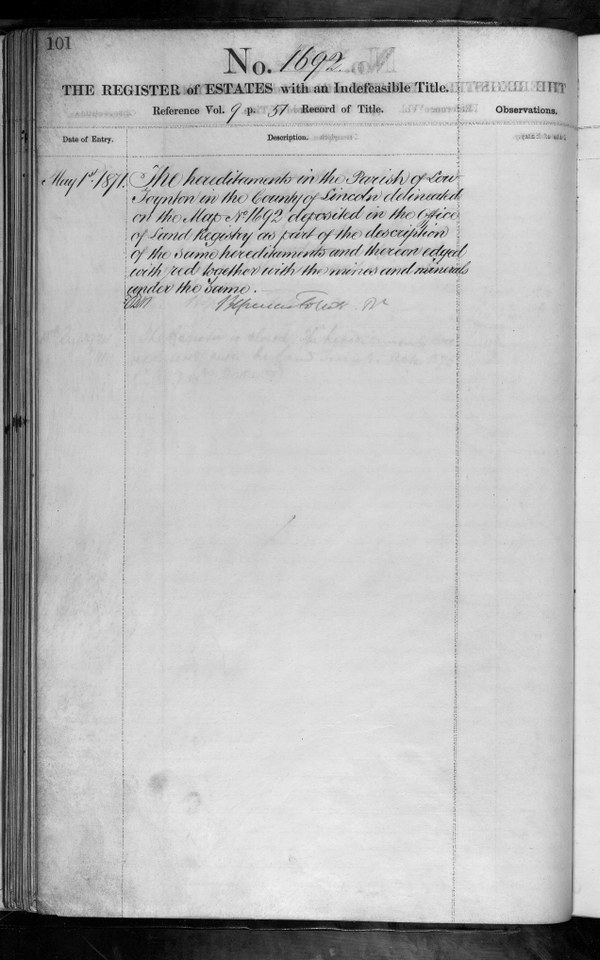 101
No. 1692
THE REGISTER of ESTATES with an Indefeasible Title.
Reference Vol. 9 p. 51 Record of Title.
Observations.
Date of Entry.
Description.
May 1st 1871.
The hereditaments in the Parish of Low
Toynton in the County of Lincoln delineated
on the Map No 1692 deposited in the Office
of Land Registry as part of the description
of the same hereditaments and thereon edged
with red together with the mines and minerals
under the same.